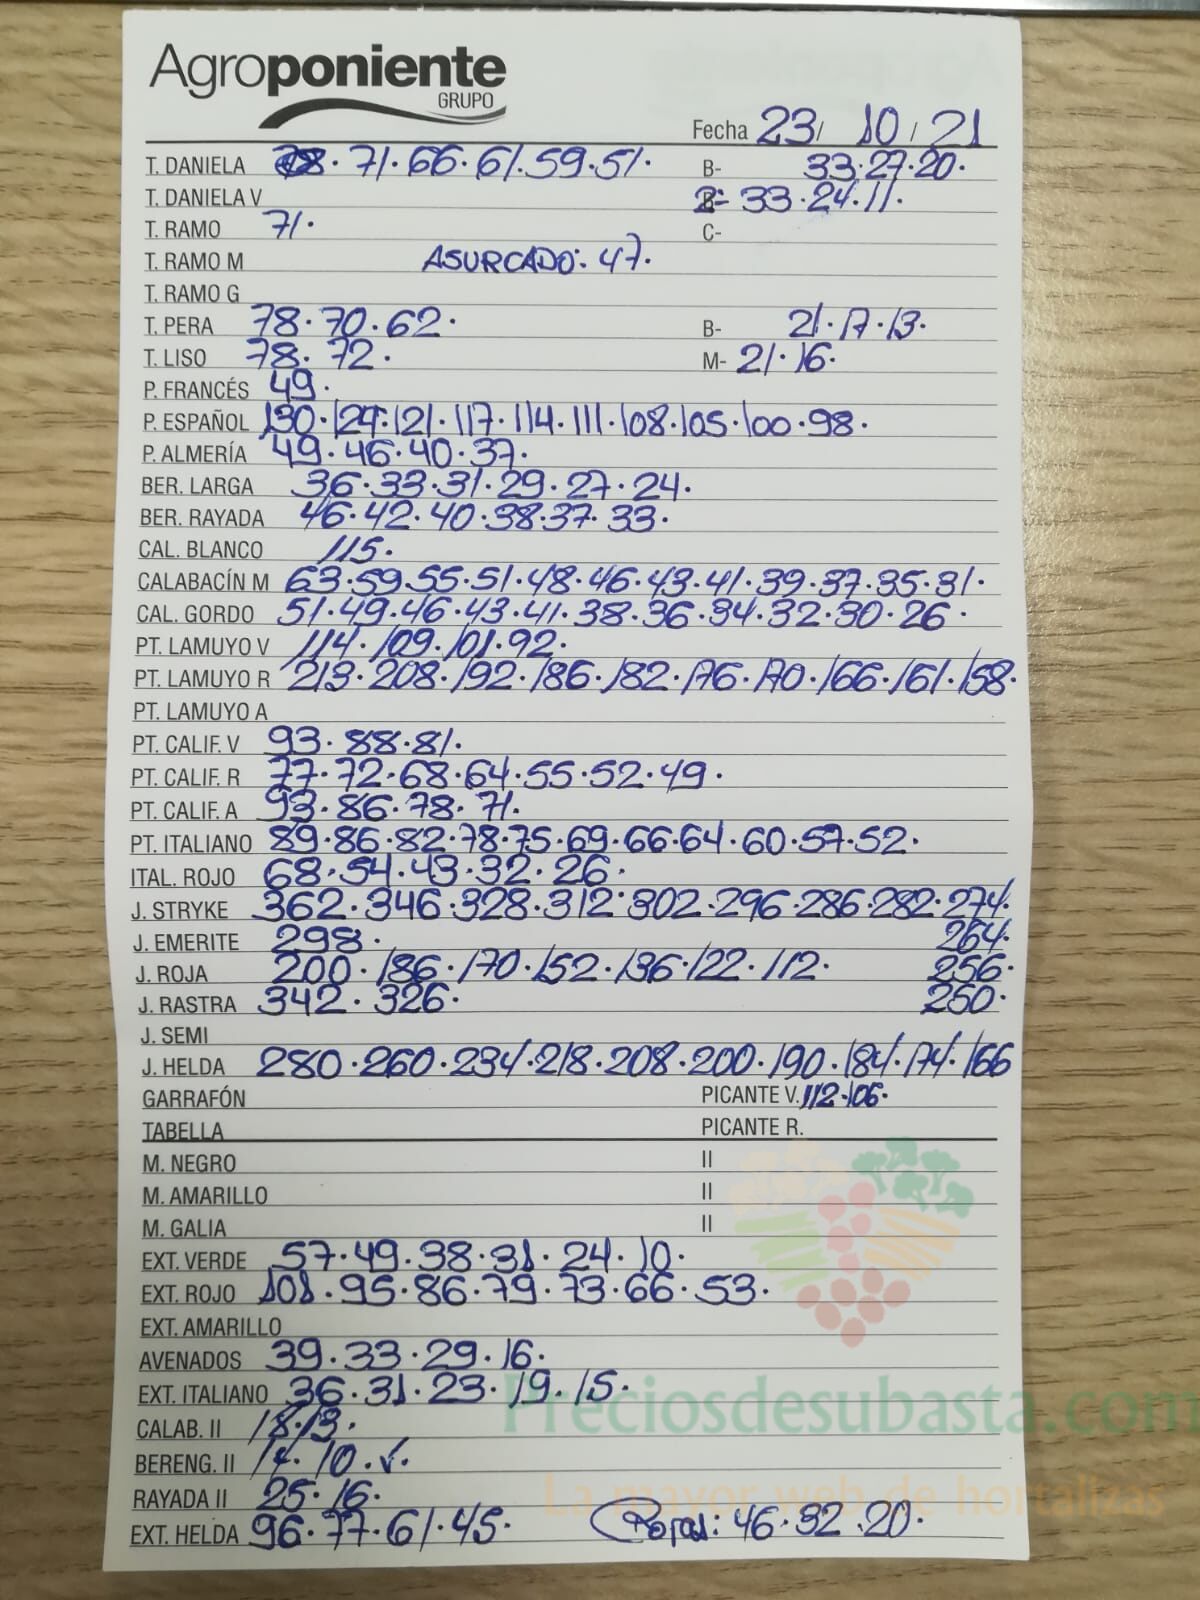 Agroponiente
GRUPO
Fecha 23/ 10 / 21
T. DANIELA 78. 71. 66. 61. 59. 51. B- 33. 27. 20.
T. DANIELA V 2- 33. 24. 11.
T. RAMO 71. C-
T. RAMO M ASURCADO: 47.
T. RAMO G
T. PERA 78. 70. 62. B- 21. 17. 13.
T. LISO 78. 72. M- 21. 16.
P. FRANCÉS 49.
P. ESPAÑOL 130. 124. 121. 117. 114. 111. 108. 105. 100. 98.
P. ALMERÍA 49. 46. 40. 37.
BER. LARGA 36. 33. 31. 29. 27. 24.
BER. RAYADA 46. 42. 40. 38. 37. 33.
CAL. BLANCO 115.
CALABACÍN M 63. 59. 55. 51. 48. 46. 43. 41. 39. 37. 35. 31.
CAL. GORDO 51. 49. 46. 43. 41. 38. 36. 34. 32. 30. 26.
PT. LAMUYO V 114. 109. 101. 92.
PT. LAMUYO R 213. 208. 192. 186. 182. 176. 170. 166. 161. 158.
PT. LAMUYO A
PT. CALIF. V 93. 88. 81.
PT. CALIF. R 77. 72. 68. 64. 55. 52. 49.
PT. CALIF. A 93. 86. 78. 71.
PT. ITALIANO 89. 86. 82. 78. 75. 69. 66. 64. 60. 57. 52.
ITAL. ROJO 68. 54. 43. 32. 26.
J. STRYKE 362. 346. 328. 312. 302. 296. 286. 282. 274.
J. EMERITE 298. 264.
J. ROJA 200. 186. 170. 152. 136. 122. 112. 256.
J. RASTRA 342. 326. 250.
J. SEMI
J. HELDA 280. 260. 234. 218. 208. 200. 190. 184. 174. 166
GARRAFÓN PICANTE V. 112. 106.
TABELLA PICANTE R.
M. NEGRO II
M. AMARILLO II
M. GALIA II
EXT. VERDE 57. 49. 38. 31. 24. 10.
EXT. ROJO 101. 95. 86. 79. 73. 66. 53.
EXT. AMARILLO
AVENADOS 39. 33. 29. 16.
EXT. ITALIANO 36. 31. 23. 19. 15.
Preciosdesubasta.com
CALAB. II 18. 13.
BERENG. II 14. 10. ✓.
RAYADA II 25. 16.
La mayor web de hortalizas
EXT. HELDA 96. 77. 61. 45. 46. 32. 20.